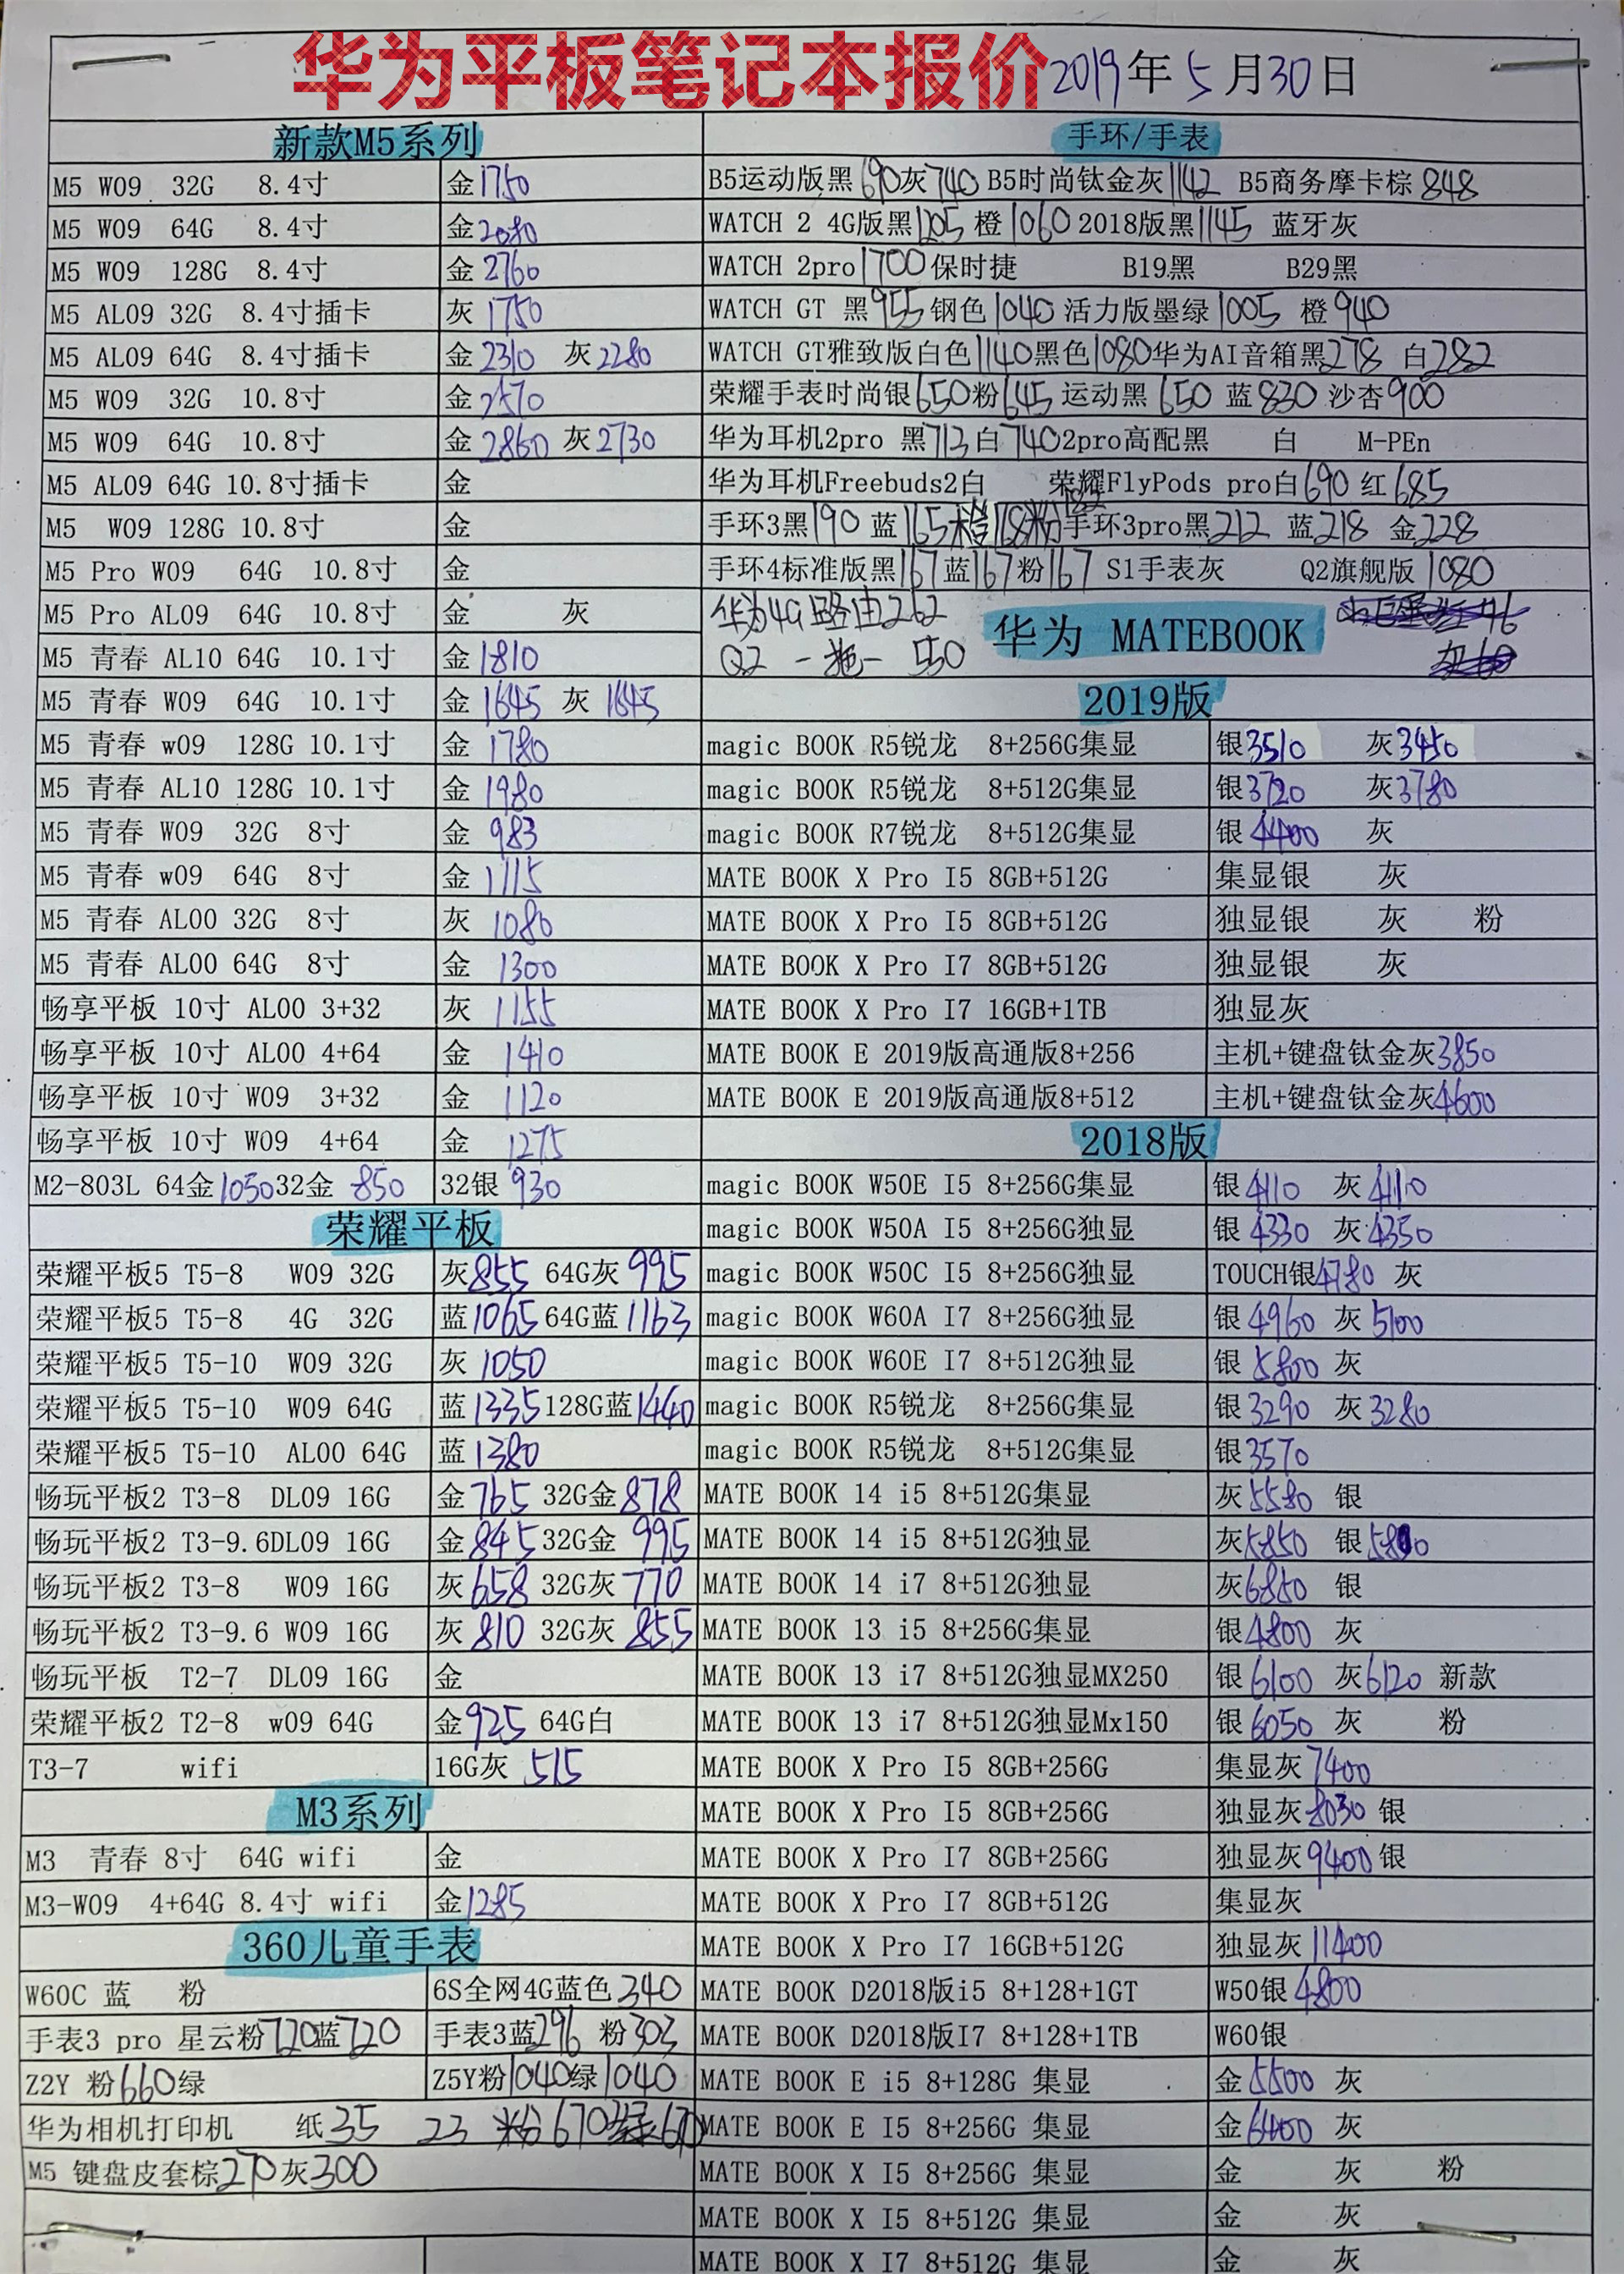 华为平板笔记本报价2019年5月30日
新款M5系列
M5 W09 32G 8.4寸 金1750
M5 W09 64G 8.4寸 金2080
M5 W09 128G 8.4寸 金2760
M5 AL09 32G 8.4寸插卡 灰1750
M5 AL09 64G 8.4寸插卡 金2310 灰2280
M5 W09 32G 10.8寸 金2570
M5 W09 64G 10.8寸 金2860 灰2730
M5 AL09 64G 10.8寸插卡 金
M5 W09 128G 10.8寸 金
M5 Pro W09 64G 10.8寸 金
M5 Pro AL09 64G 10.8寸 金 灰
M5 青春 AL10 64G 10.1寸 金1810
M5 青春 W09 64G 10.1寸 金1645 灰1645
M5 青春 w09 128G 10.1寸 金1780
M5 青春 AL10 128G 10.1寸 金1980
M5 青春 W09 32G 8寸 金983
M5 青春 w09 64G 8寸 金1115
M5 青春 AL00 32G 8寸 灰1080
M5 青春 AL00 64G 8寸 金1300
畅享平板 10寸 AL00 3+32 灰1155
畅享平板 10寸 AL00 4+64 金1410
畅享平板 10寸 W09 3+32 金1120
畅享平板 10寸 W09 4+64 金1275
M2-803L 64金1050 32金850 32银930
荣耀平板
荣耀平板5 T5-8 W09 32G 灰855 64G灰995
荣耀平板5 T5-8 4G 32G 蓝1065 64G蓝1163
荣耀平板5 T5-10 W09 32G 灰1050
荣耀平板5 T5-10 W09 64G 蓝1335 128G蓝1440
荣耀平板5 T5-10 AL00 64G 蓝1380
畅玩平板2 T3-8 DL09 16G 金765 32G金878
畅玩平板2 T3-9.6DL09 16G 金845 32G金995
畅玩平板2 T3-8 W09 16G 灰658 32G灰770
畅玩平板2 T3-9.6 W09 16G 灰810 32G灰855
畅玩平板 T2-7 DL09 16G 金
荣耀平板2 T2-8 w09 64G 金925 64G白
T3-7 wifi 16G灰515
M3系列
M3 青春 8寸 64G wifi 金
M3-W09 4+64G 8.4寸 wifi 金1285
360儿童手表
W60C 蓝 粉 6S全网4G蓝色340
手表3 pro 星云粉720蓝720 手表3蓝296 粉303
Z2Y 粉660绿 Z5Y粉1040绿1040
华为相机打印机 纸35 23 粉670绿670
M5 键盘皮套棕270灰300
手环/手表
B5运动版黑690灰740 B5时尚钛金灰1142 B5商务摩卡棕848
WATCH 2 4G版黑1205 橙1060 2018版黑1145 蓝牙灰
WATCH 2pro1700保时捷 B19黑 B29黑
WATCH GT 黑955钢色1040活力版墨绿1005 橙940
WATCH GT雅致版白色1140黑色1080华为AI音箱黑278 白282
荣耀手表时尚银650粉645 运动黑650 蓝830 沙杏900
华为耳机2pro 黑713白740 2pro高配黑 白 M-PEn
华为耳机Freebuds2白 荣耀FlyPods pro白690 红685
手环3黑190 蓝165橙168粉182手环3pro黑212 蓝218 金228
手环4标准版黑167蓝167粉167 S1手表灰 Q2旗舰版1080
华为4G路由262
Q2 一拖一 550
华为 MATEBOOK
2019版
magic BOOK R5锐龙 8+256G集显 银3510 灰3450
magic BOOK R5锐龙 8+512G集显 银3720 灰3780
magic BOOK R7锐龙 8+512G集显 银4400 灰
MATE BOOK X Pro I5 8GB+512G 集显银 灰
MATE BOOK X Pro I5 8GB+512G 独显银 灰 粉
MATE BOOK X Pro I7 8GB+512G 独显银 灰
MATE BOOK X Pro I7 16GB+1TB 独显灰
MATE BOOK E 2019版高通版8+256 主机+键盘钛金灰3850
MATE BOOK E 2019版高通版8+512 主机+键盘钛金灰4600
2018版
magic BOOK W50E I5 8+256G集显 银4110 灰4110
magic BOOK W50A I5 8+256G独显 银4330 灰4350
magic BOOK W50C I5 8+256G独显 TOUCH银4780 灰
magic BOOK W60A I7 8+256G独显 银4960 灰5100
magic BOOK W60E I7 8+512G独显 银5800 灰
magic BOOK R5锐龙 8+256G集显 银3290 灰3280
magic BOOK R5锐龙 8+512G集显 银3570
MATE BOOK 14 i5 8+512G集显 灰5580 银
MATE BOOK 14 i5 8+512G独显 灰5850 银
MATE BOOK 14 i7 8+512G独显 灰6850 银
MATE BOOK 13 i5 8+256G集显 银4800 灰
MATE BOOK 13 i7 8+512G独显MX250 银6100 灰6120 新款
MATE BOOK 13 i7 8+512G独显Mx150 银6050 灰 粉
MATE BOOK X Pro I5 8GB+256G 集显灰7400
MATE BOOK X Pro I5 8GB+256G 独显灰8030 银
MATE BOOK X Pro I7 8GB+256G 独显灰9400银
MATE BOOK X Pro I7 8GB+512G 集显灰
MATE BOOK X Pro I7 16GB+512G 独显灰11400
MATE BOOK D2018版i5 8+128+1GT W50银4800
MATE BOOK D2018版I7 8+128+1TB W60银
MATE BOOK E i5 8+128G 集显 金5500 灰
MATE BOOK E I5 8+256G 集显 金6400 灰
MATE BOOK X I5 8+256G 集显 金 灰 粉
MATE BOOK X I5 8+512G 集显 金 灰
MATE BOOK X I7 8+512G 集显 金 灰